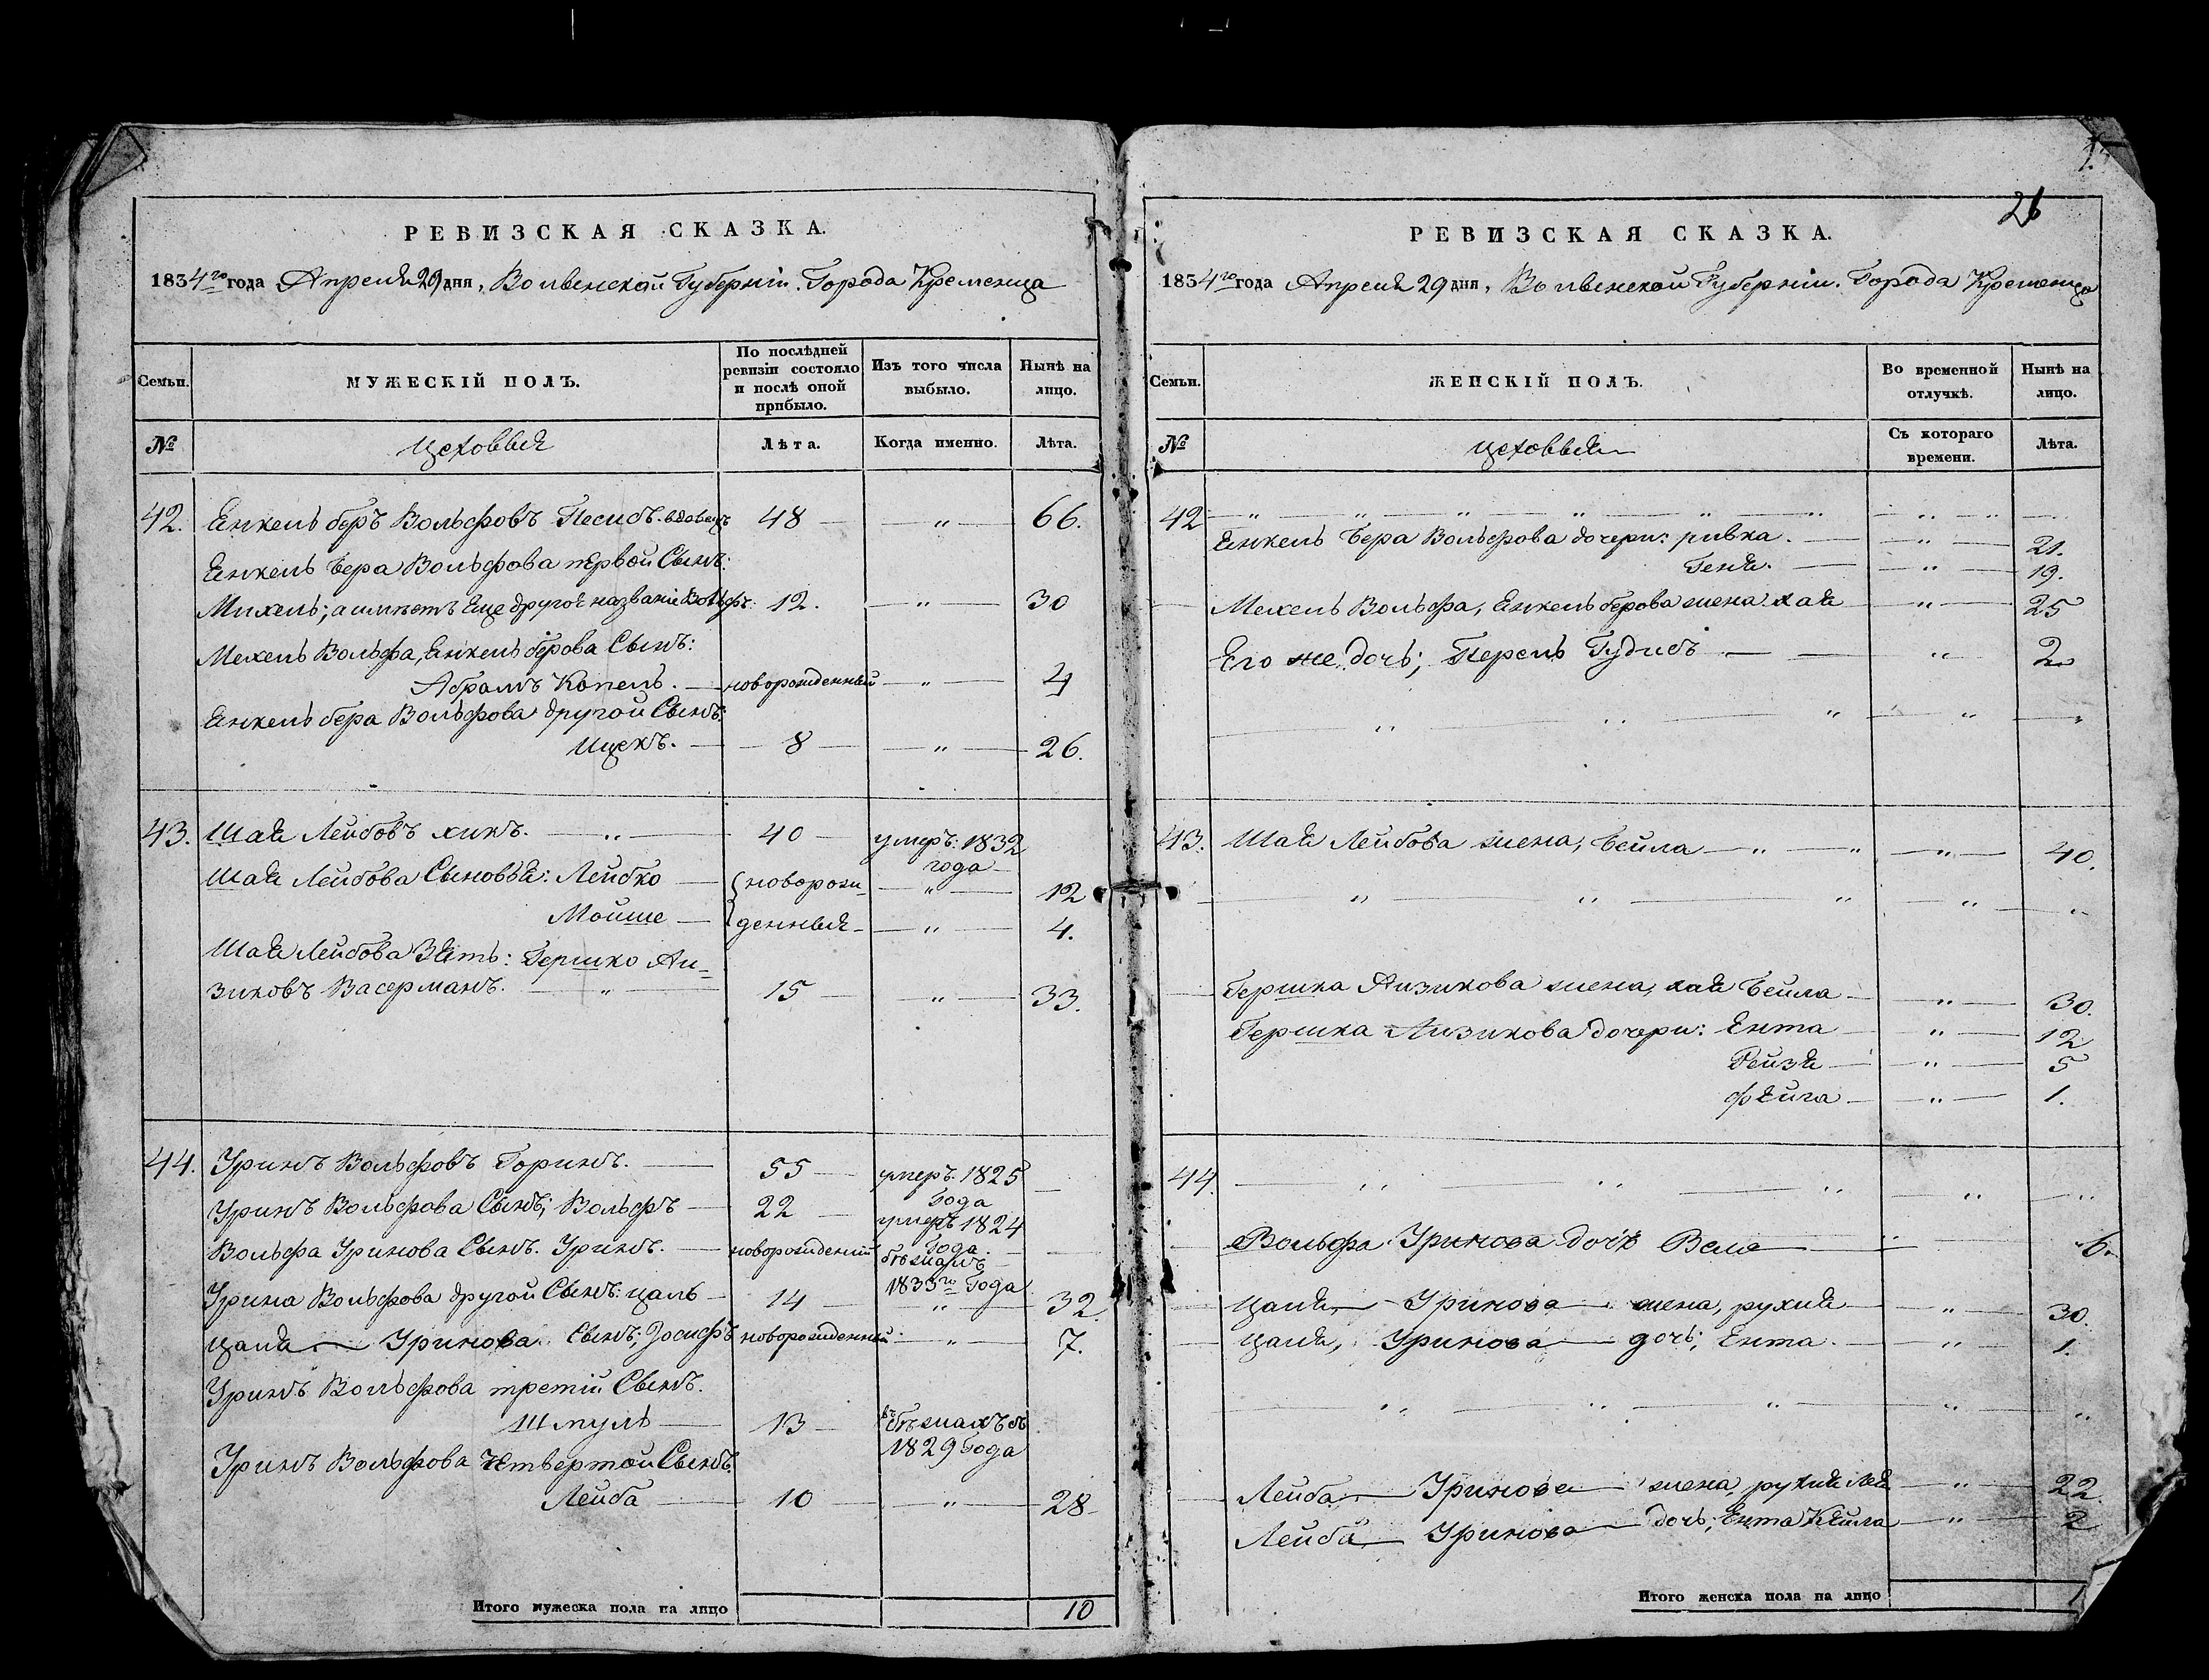 26
РЕВИЗСКАЯ СКАЗКА.
1834го года Апреля 29 дня, Волынской Губернiи. Города Кременца
Семьи.
МУЖЕСКIЙ ПОЛЪ.
По послѣдней ревизiи состояло и послѣ оной прибыло.
Изъ того числа выбыло.
Нынѣ на лицо.
№
цеховыя
Лѣта.
Когда именно.
Лѣта.
42. Енкель беръ Вольфовъ Песисъ. вдовецъ 48 — „ — 66.
Енкель бера Вольфова первой Сынъ:
Михель; а имѣетъ Еще другое названiе Вольфъ: 12. — „ — 30
Мехель Вольфа, Енкель берова Сынъ:
Абрамъ Копель. — новорожденный — „ — 4
Енкель бера Вольфова другой Сынъ:
Ицекъ. — 8 — „ — 26.
43. Шая Лейбовъ хикъ. — „ — 40 — умеръ: 1832
года
Шая Лейбова Сыновья: Лейбко — новорож- — „ — 12
Мойше — денныя — „ — 4.
Шая Лейбова Зять: Гершко Аи=
зиковъ Васерманъ. — „ — 15 — „ — 33.
44. Уринъ Вольфовъ Горинъ. — 55 — умеръ. 1825
Года
Уринъ Вольфова Сынъ; Вольфъ — 22 — умеръ 1824
Года
Вольфа Уринова Сынъ. Уринъ. — новорожденнiй бѣжалъ
1833го Года
Урина Вольфова другой Сынъ: цаль — 14 — „ — 32
цаля — Уринова Сынъ; Iосифъ новорожденный — „ — 7.
Уринъ Вольфова третiй Сынъ.
Шмуль — 13 — въ бѣжахъ съ
1829 Года
Уринъ Вольфова Четвертой Сынъ.
Лейба — 10 — „ — 28
Итого мужеска пола на лицо 10
РЕВИЗСКАЯ СКАЗКА.
1834го года Апреля 29 дня, Волынской Губернiи. Города Кременца
Семьи.
ЖЕНСКIЙ ПОЛЪ.
Во временной отлучкѣ.
Нынѣ на лицо.
№
цеховыя
Съ котораго времени.
Лѣта.
42 — „ — „ — „ — „ — „ —
Енкель Бера Вольфова дочери: ривка. — „ — 21.
Геня. — „ — 19.
Мехель Вольфа, Енкель берова жена хая — „ — 25
Его же дочь; Перель Гудисъ — „ — 2
43. Шая Лейбова жена, бейла — „ — „ — 40.
Гершка Аизикова жена, хая бейла — „ — 30.
Гершка Аизикова дочери: Ента — „ — 12
Рейзя — „ — 5
фейга — „ — 1.
44. — „ — „ — „ — „ —
Вольфа Уринова дочь Веля — 6.
цаля — Уринова — жена, рухля — „ — 30.
цаля, Уринова — дочь; Ента. — „ — 1.
Лейба — Уринова — жена, рухля Лея — „ — 22
Лейба — Уринова — дочь; Ента Кейла — „ — 2
Итого женска пола на лицо